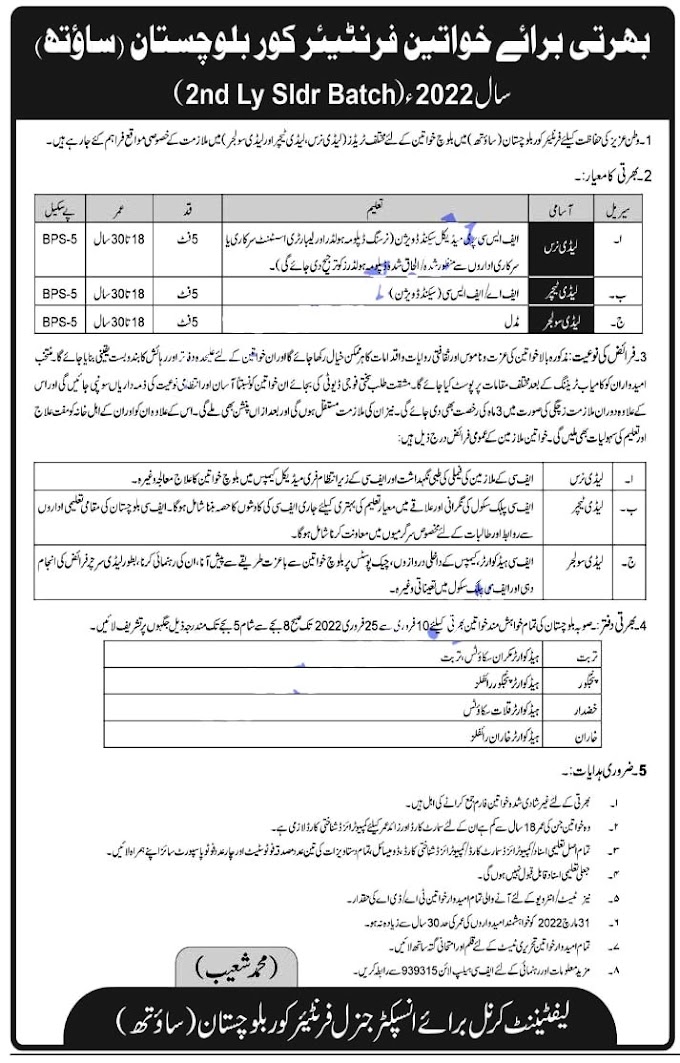 بھرتی برائے خواتین فرنٹیئر کور بلوچستان (ساؤتھ)
سال 2022ء (2nd Ly Sldr Batch)
1۔ وطن عزیز کی حفاظت کیلئے فرنٹیئر کور بلوچستان (ساؤتھ) میں بلوچ خواتین کے لئے مختلف ٹریڈز (لیڈی نرس، لیڈی ٹیچر اور لیڈی سولجر) میں ملازمت کے خصوصی مواقع فراہم کئے جا رہے ہیں۔
2۔ بھرتی کا معیار:۔
سیریل آسامی تعلیم قد عمر پے سکیل
ا۔ لیڈی نرس ایف ایس سی پری میڈیکل سیکنڈ ڈویژن (نرسنگ ڈپلومہ ہولڈر اور لیبارٹری اسسٹنٹ سرکاری یا 5 فٹ 18 تا 30 سال BPS-5
سرکاری اداروں سے منظور شدہ/الحاق شدہ ڈپلومہ ہولڈرز کو ترجیح دی جائے گی)۔
ب۔ لیڈی ٹیچر ایف اے/ایف ایس سی (سیکنڈ ڈویژن) 5 فٹ 18 تا 30 سال BPS-5
ج۔ لیڈی سولجر مڈل 5 فٹ 18 تا 30 سال BPS-5
3۔ فرائض کی نوعیت: مذکورہ بالا خواتین کی عزت و ناموس اور ثقافتی روایات و اقدامات کا ہر ممکن خیال رکھا جائے گا اور ان خواتین کے لئے علیحدہ دفتر اور رہائش کا بندوبست یقینی بنایا جائے گا۔ منتخب
امیدواران کو کامیاب ٹریننگ کے بعد مختلف مقامات پر پوسٹ کیا جائے گا۔ مشقت طلب سختی فوجی ڈیوٹی کی بجائے ان خواتین کو نسبتاً آسان اور انتظامی نوعیت کی ذمہ داریاں سونپی جائیں گی اور اس
کے علاوہ دوران ملازمت زچگی کی صورت میں 3 ماہ کی رخصت بھی دی جائے گی۔ نیز ان کی ملازمت مستقل ہوگی اور بعد ازاں پنشن بھی ملے گی۔ اس کے علاوہ ان کو اور ان کے اہل خانہ کو مفت علاج
اور تعلیم کی سہولیات بھی ملیں گی۔ خواتین ملازمین کے عمومی فرائض درج ذیل ہیں:
ا۔ لیڈی نرس ایف سی کے ملازمین کی فیملی کی طبی نگہداشت اور ایف سی کے زیر انتظام فری میڈیکل کیمپس میں بلوچ خواتین کا علاج معالجہ وغیرہ۔
ب۔ لیڈی ٹیچر ایف سی پبلک سکول کی نگرانی اور علاقے میں معیار تعلیم کی بہتری کیلئے جاری ایف سی کی کاوشوں کا حصہ بننا شامل ہوگا۔ ایف سی بلوچستان کی مقامی تعلیمی اداروں
سے روابط اور طالبات کے لئے مخصوص سرگرمیوں میں معاونت کرنا شامل ہوگا۔
ج۔ لیڈی سولجر ایف سی ہیڈ کوارٹر، کیمپس کے داخلی دروازوں، چیک پوسٹس پر بلوچ خواتین سے باعزت طریقے سے پیش آنا، ان کی رہنمائی کرنا، بطور لیڈی سرچر فرائض کی انجام
دہی اور ایف سی پبلک سکول میں تعیناتی وغیرہ۔
4۔ بھرتی دفتر: صوبہ بلوچستان کی تمام خواہش مند خواتین بھرتی کیلئے 10 فروری سے 25 فروری 2022 تک صبح 8 بجے سے شام 5 بجے تک مندرجہ ذیل جگہوں پر تشریف لائیں۔
تربت ہیڈ کوارٹر مکران سکاؤٹس، تربت
پنجگور ہیڈ کوارٹر پنجگور رائفلز
خضدار ہیڈ کوارٹر قلات سکاؤٹس
خاران ہیڈ کوارٹر خاران رائفلز
5۔ ضروری ہدایات:۔
۱۔ بھرتی کے لئے غیر شادی شدہ خواتین فارم جمع کرانے کی اہل ہیں۔
۲۔ وہ خواتین جن کی عمر 18 سال سے کم ہے ان کے لئے سمارٹ کارڈ اور زائد عمر کیلئے کمپیوٹرائزڈ شناختی کارڈ لازمی ہے۔
۳۔ تمام اصل تعلیمی اسناد/کمپیوٹرائزڈ سمارٹ کارڈ/کمپیوٹرائزڈ شناختی کارڈ، ڈومیسائل، تمام دستاویزات کی تین عدد مصدقہ فوٹوسٹیٹ اور چار عدد فوٹو پاسپورٹ سائز اپنے ہمراہ لائیں۔
۴۔ جعلی تعلیمی اسناد قابل قبول نہیں ہوں گی۔
۵۔ نیز ٹیسٹ/انٹرویو کے لئے آنے والی تمام امیدوار خواتین ٹی اے/ڈی اے کی حقدار۔
۶۔ 31 مارچ 2022 کو خواہشمند امیدواروں کی عمر کی حد 30 سال سے زیادہ نہ ہو۔
۷۔ تمام امیدوار خواتین تحریری ٹیسٹ کے لئے قلم اور امتحانی گتہ ساتھ لائیں۔
۸۔ مزید معلومات اور رہنمائی کے لئے ایف سی ہیلپ لائن 939315 سے رابطہ کریں۔
(محمد شعیب)
لیفٹیننٹ کرنل برائے انسپکٹر جنرل فرنٹیئر کور بلوچستان (ساؤتھ)